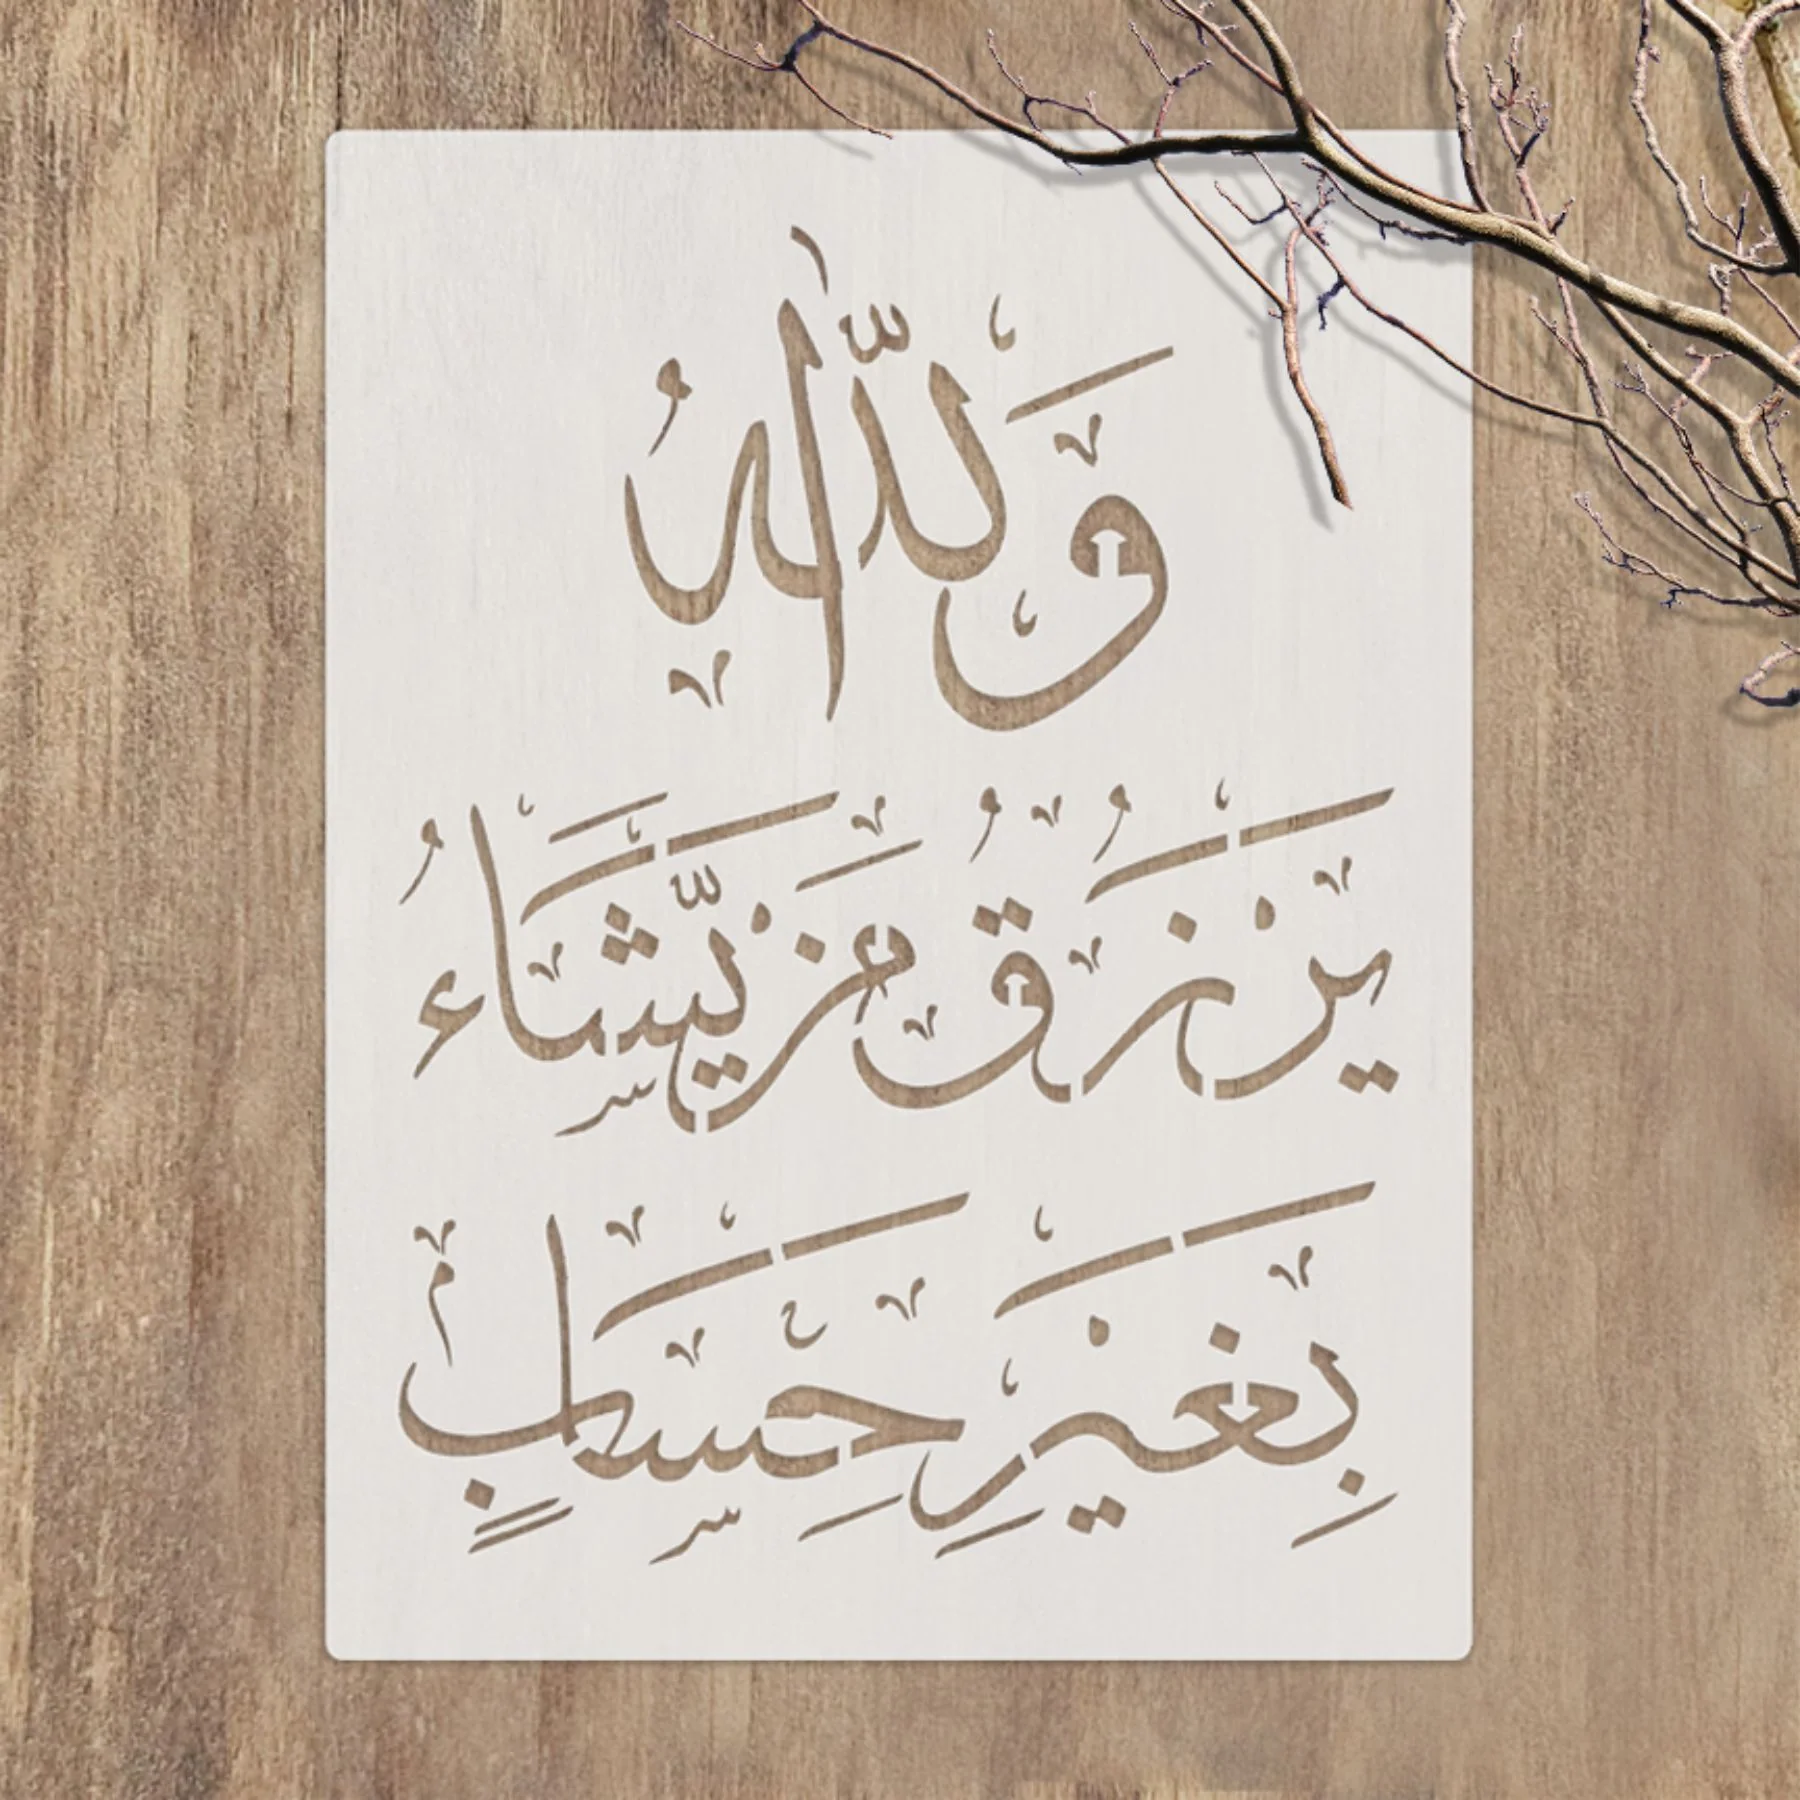 وَاللّٰهُ
يَرْزُقُ مَنْ يَّشَاءُ
بِغَيْرِ حِسَابٍ